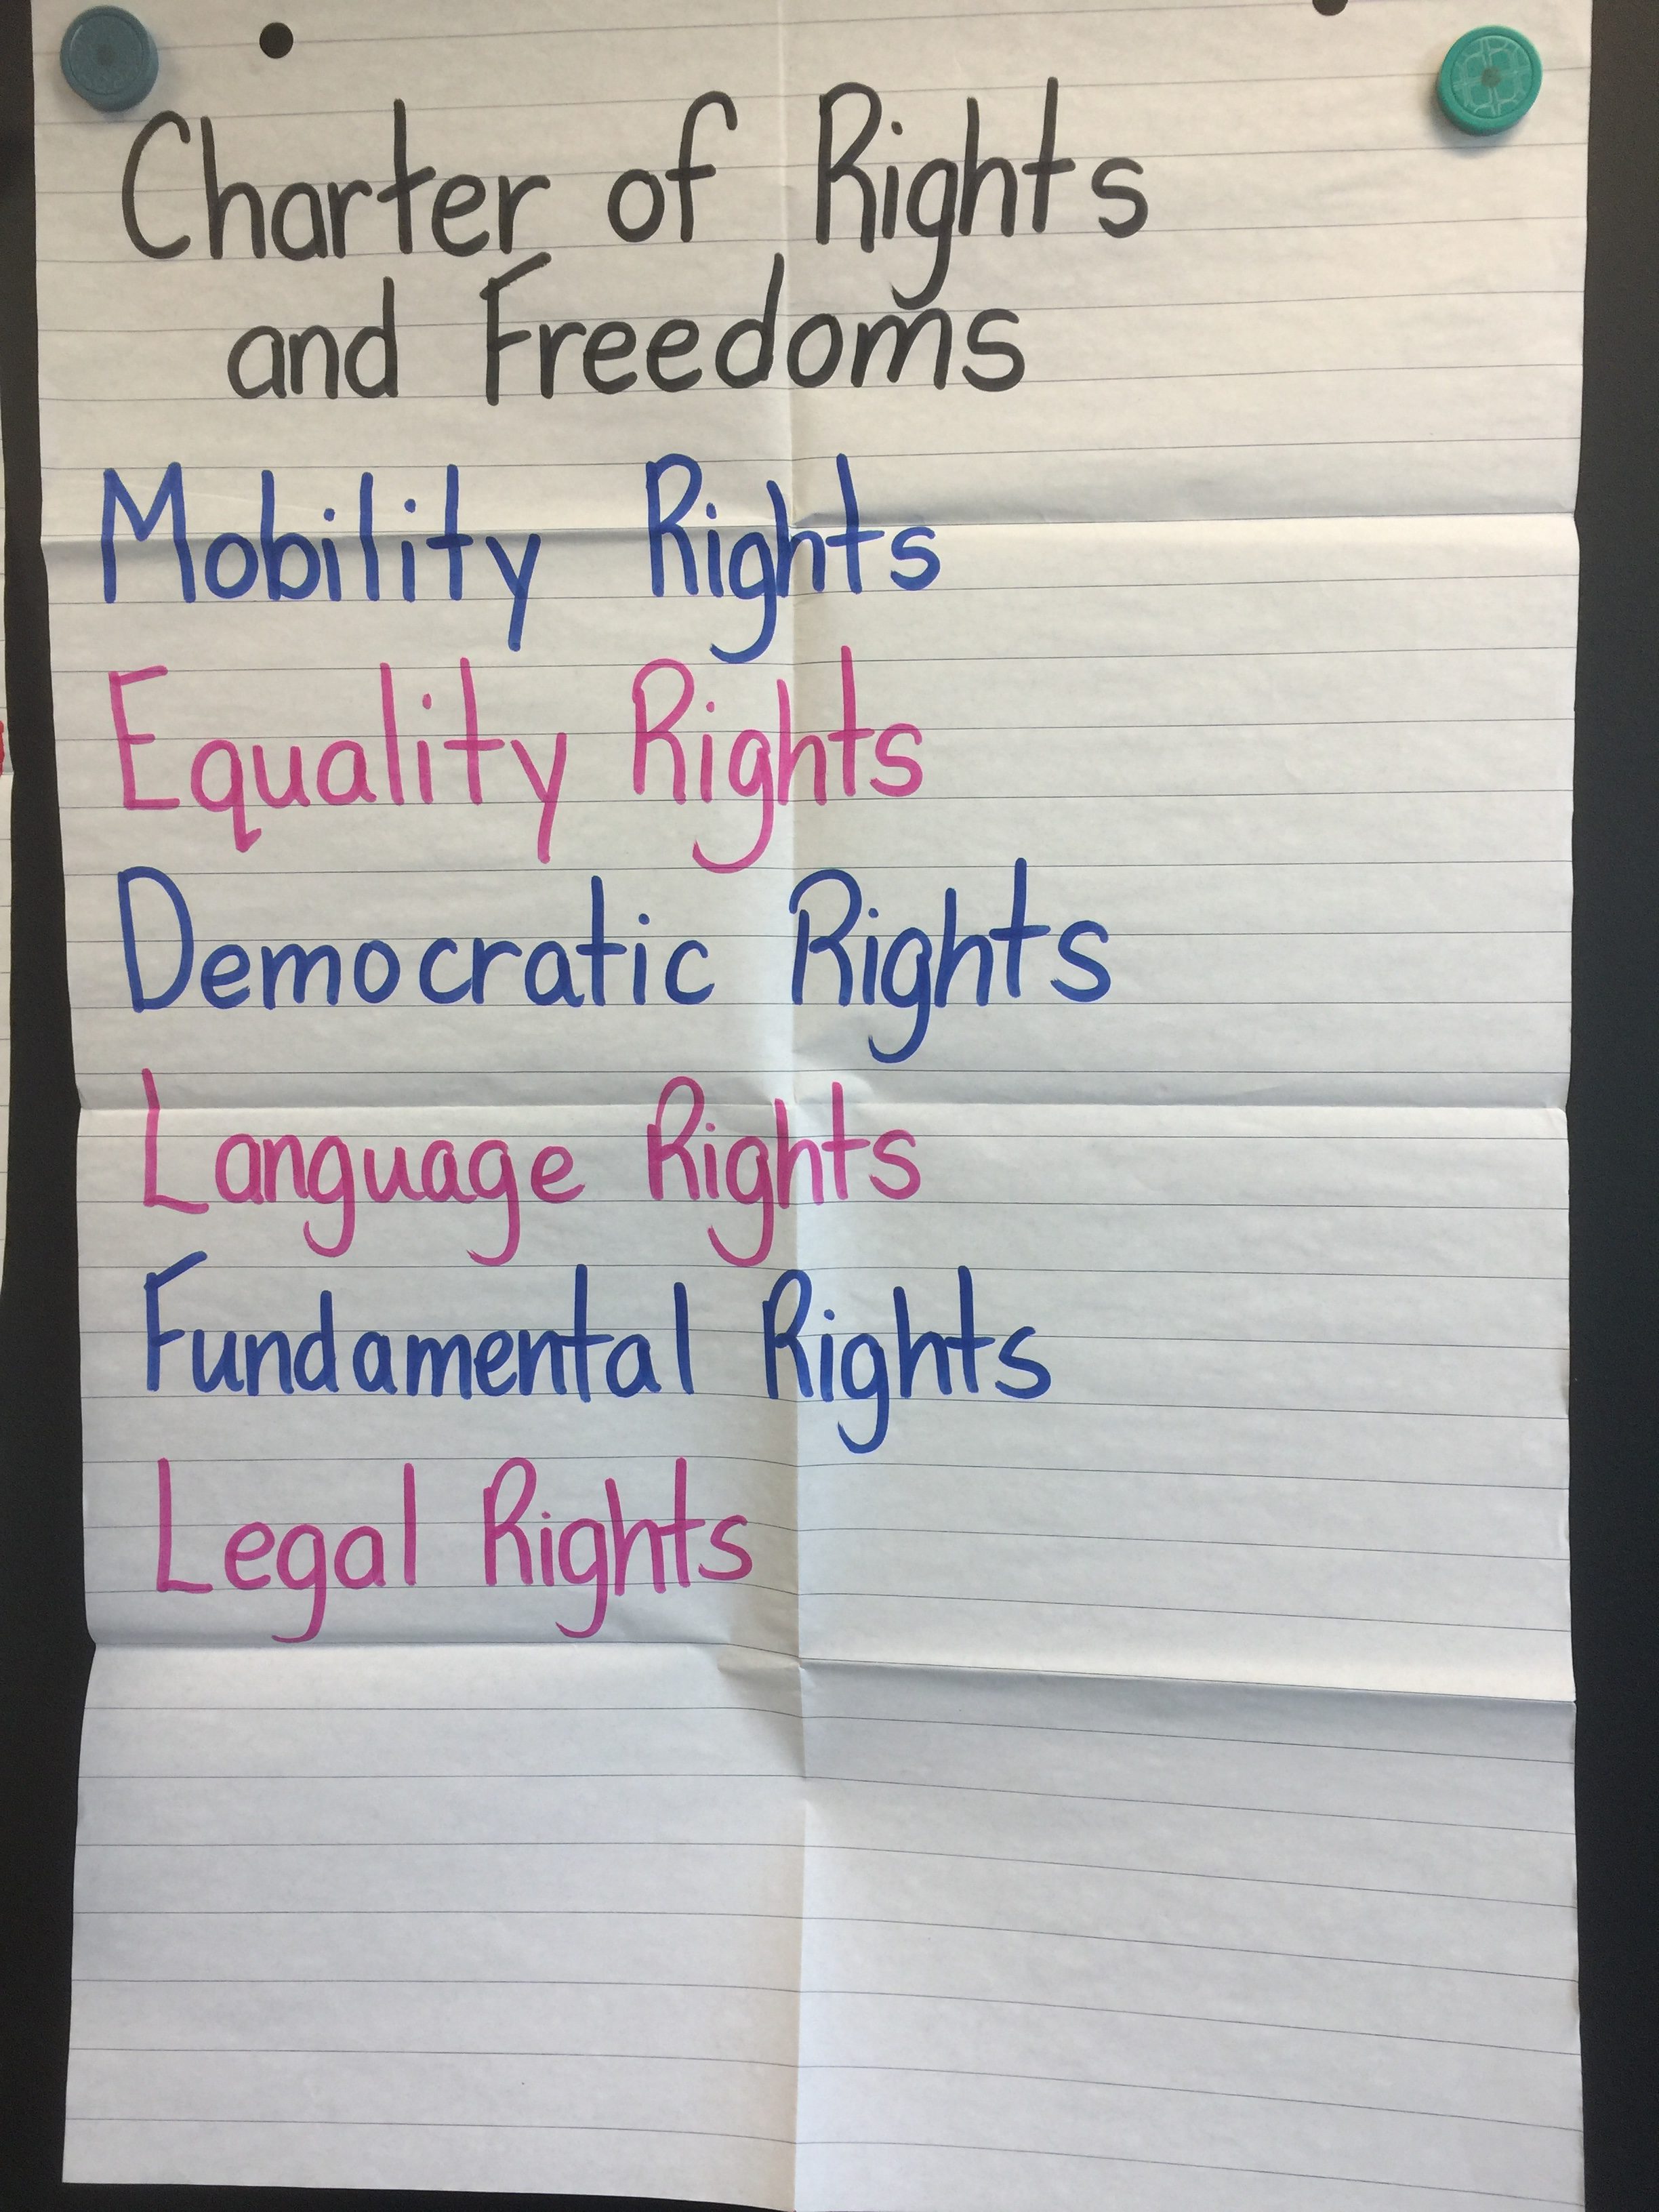 Charter of Rights
and Freedoms
Mobility Rights
Equality Rights
Democratic Rights
Language Rights
Fundamental Rights
Legal Rights